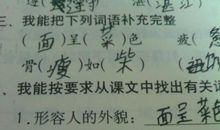 三、我能把下列词语补充完整
（面）呈（菜）色 疲（
骨（瘦）如（柴）
、我能按要求从课文中找出有关词
1.形容人的外貌：面呈菜